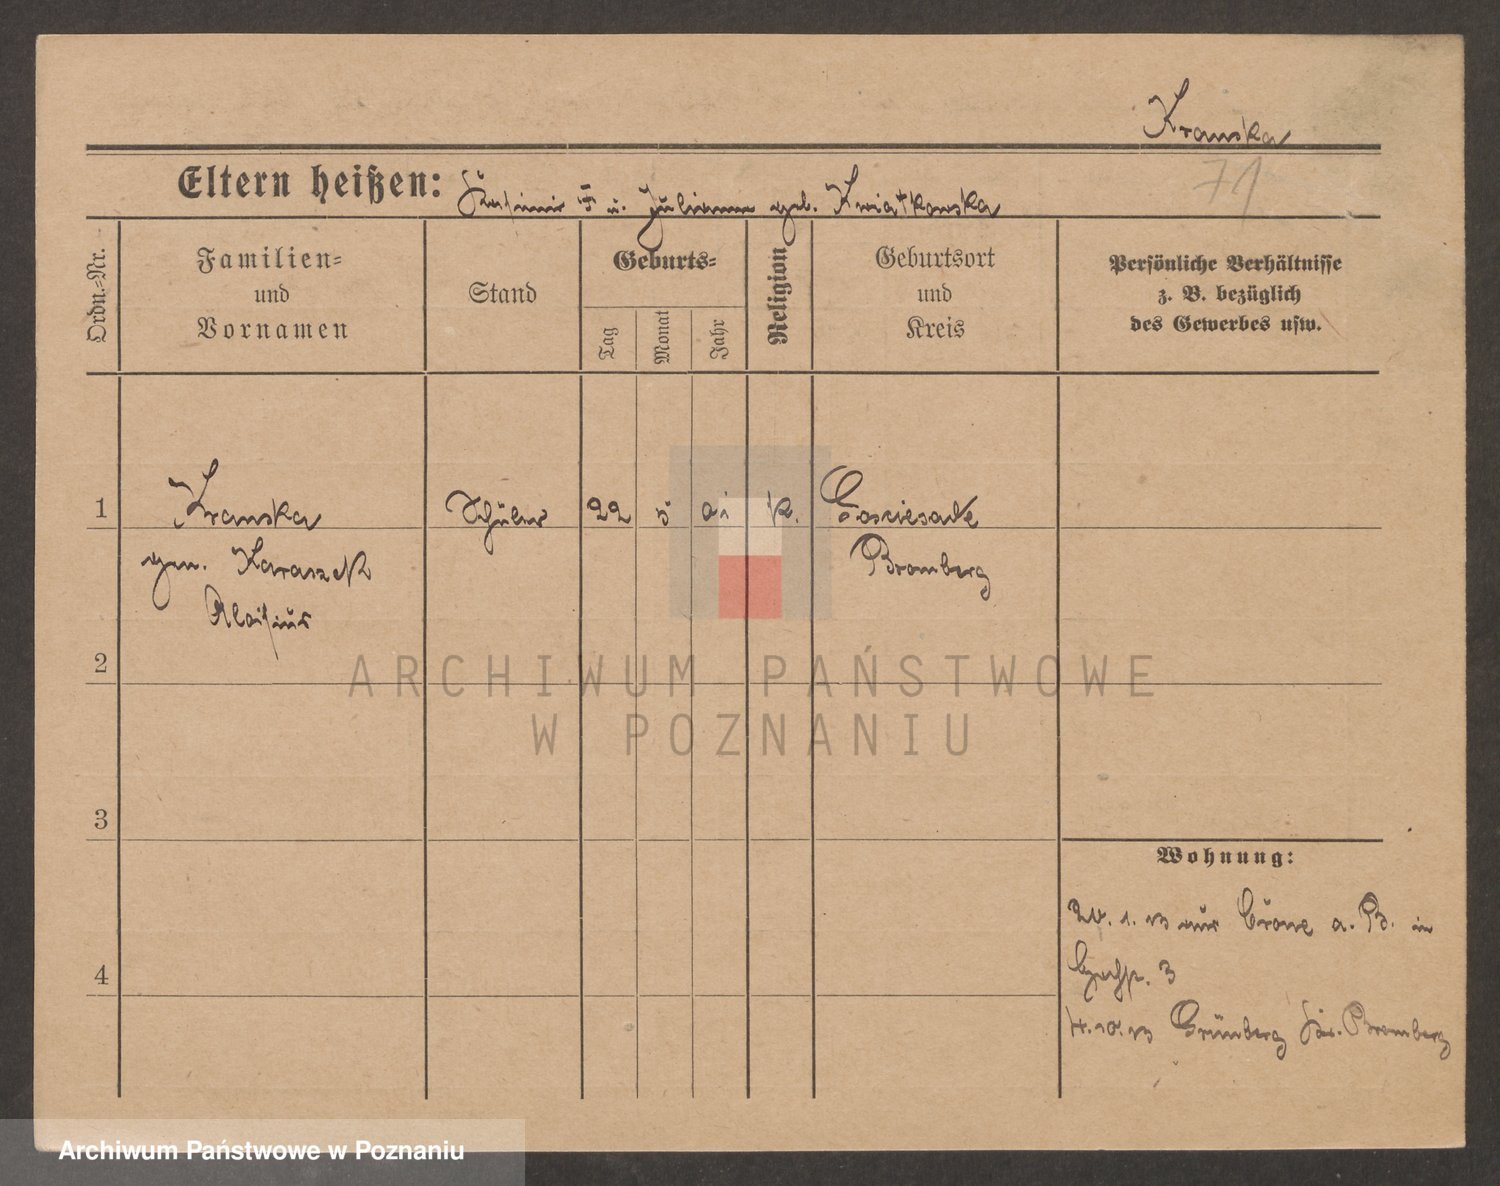 Kranska
71
Eltern heißen: Kasimir † u. Julianna geb. Kwiatkowska
Ordn.=Nr.
Familien=
und
Vornamen
Stand
Geburts=
Tag
Monat
Jahr
Religion
Geburtsort
und
Kreis
Persönliche Verhältnisse
z. B. bezüglich
des Gewerbes usw.
1
Kranska
gen. Karaszek
Aloisius
Schüler
22
5
k.
Bromberg
2
3
4
Wohnung:
1. 13 aus Crone a. B. in
3
4. 10. 13 Grünberg Kr. Bromberg
ARCHIWUM PAŃSTWOWE
W POZNANIU
Archiwum Państwowe w Poznaniu